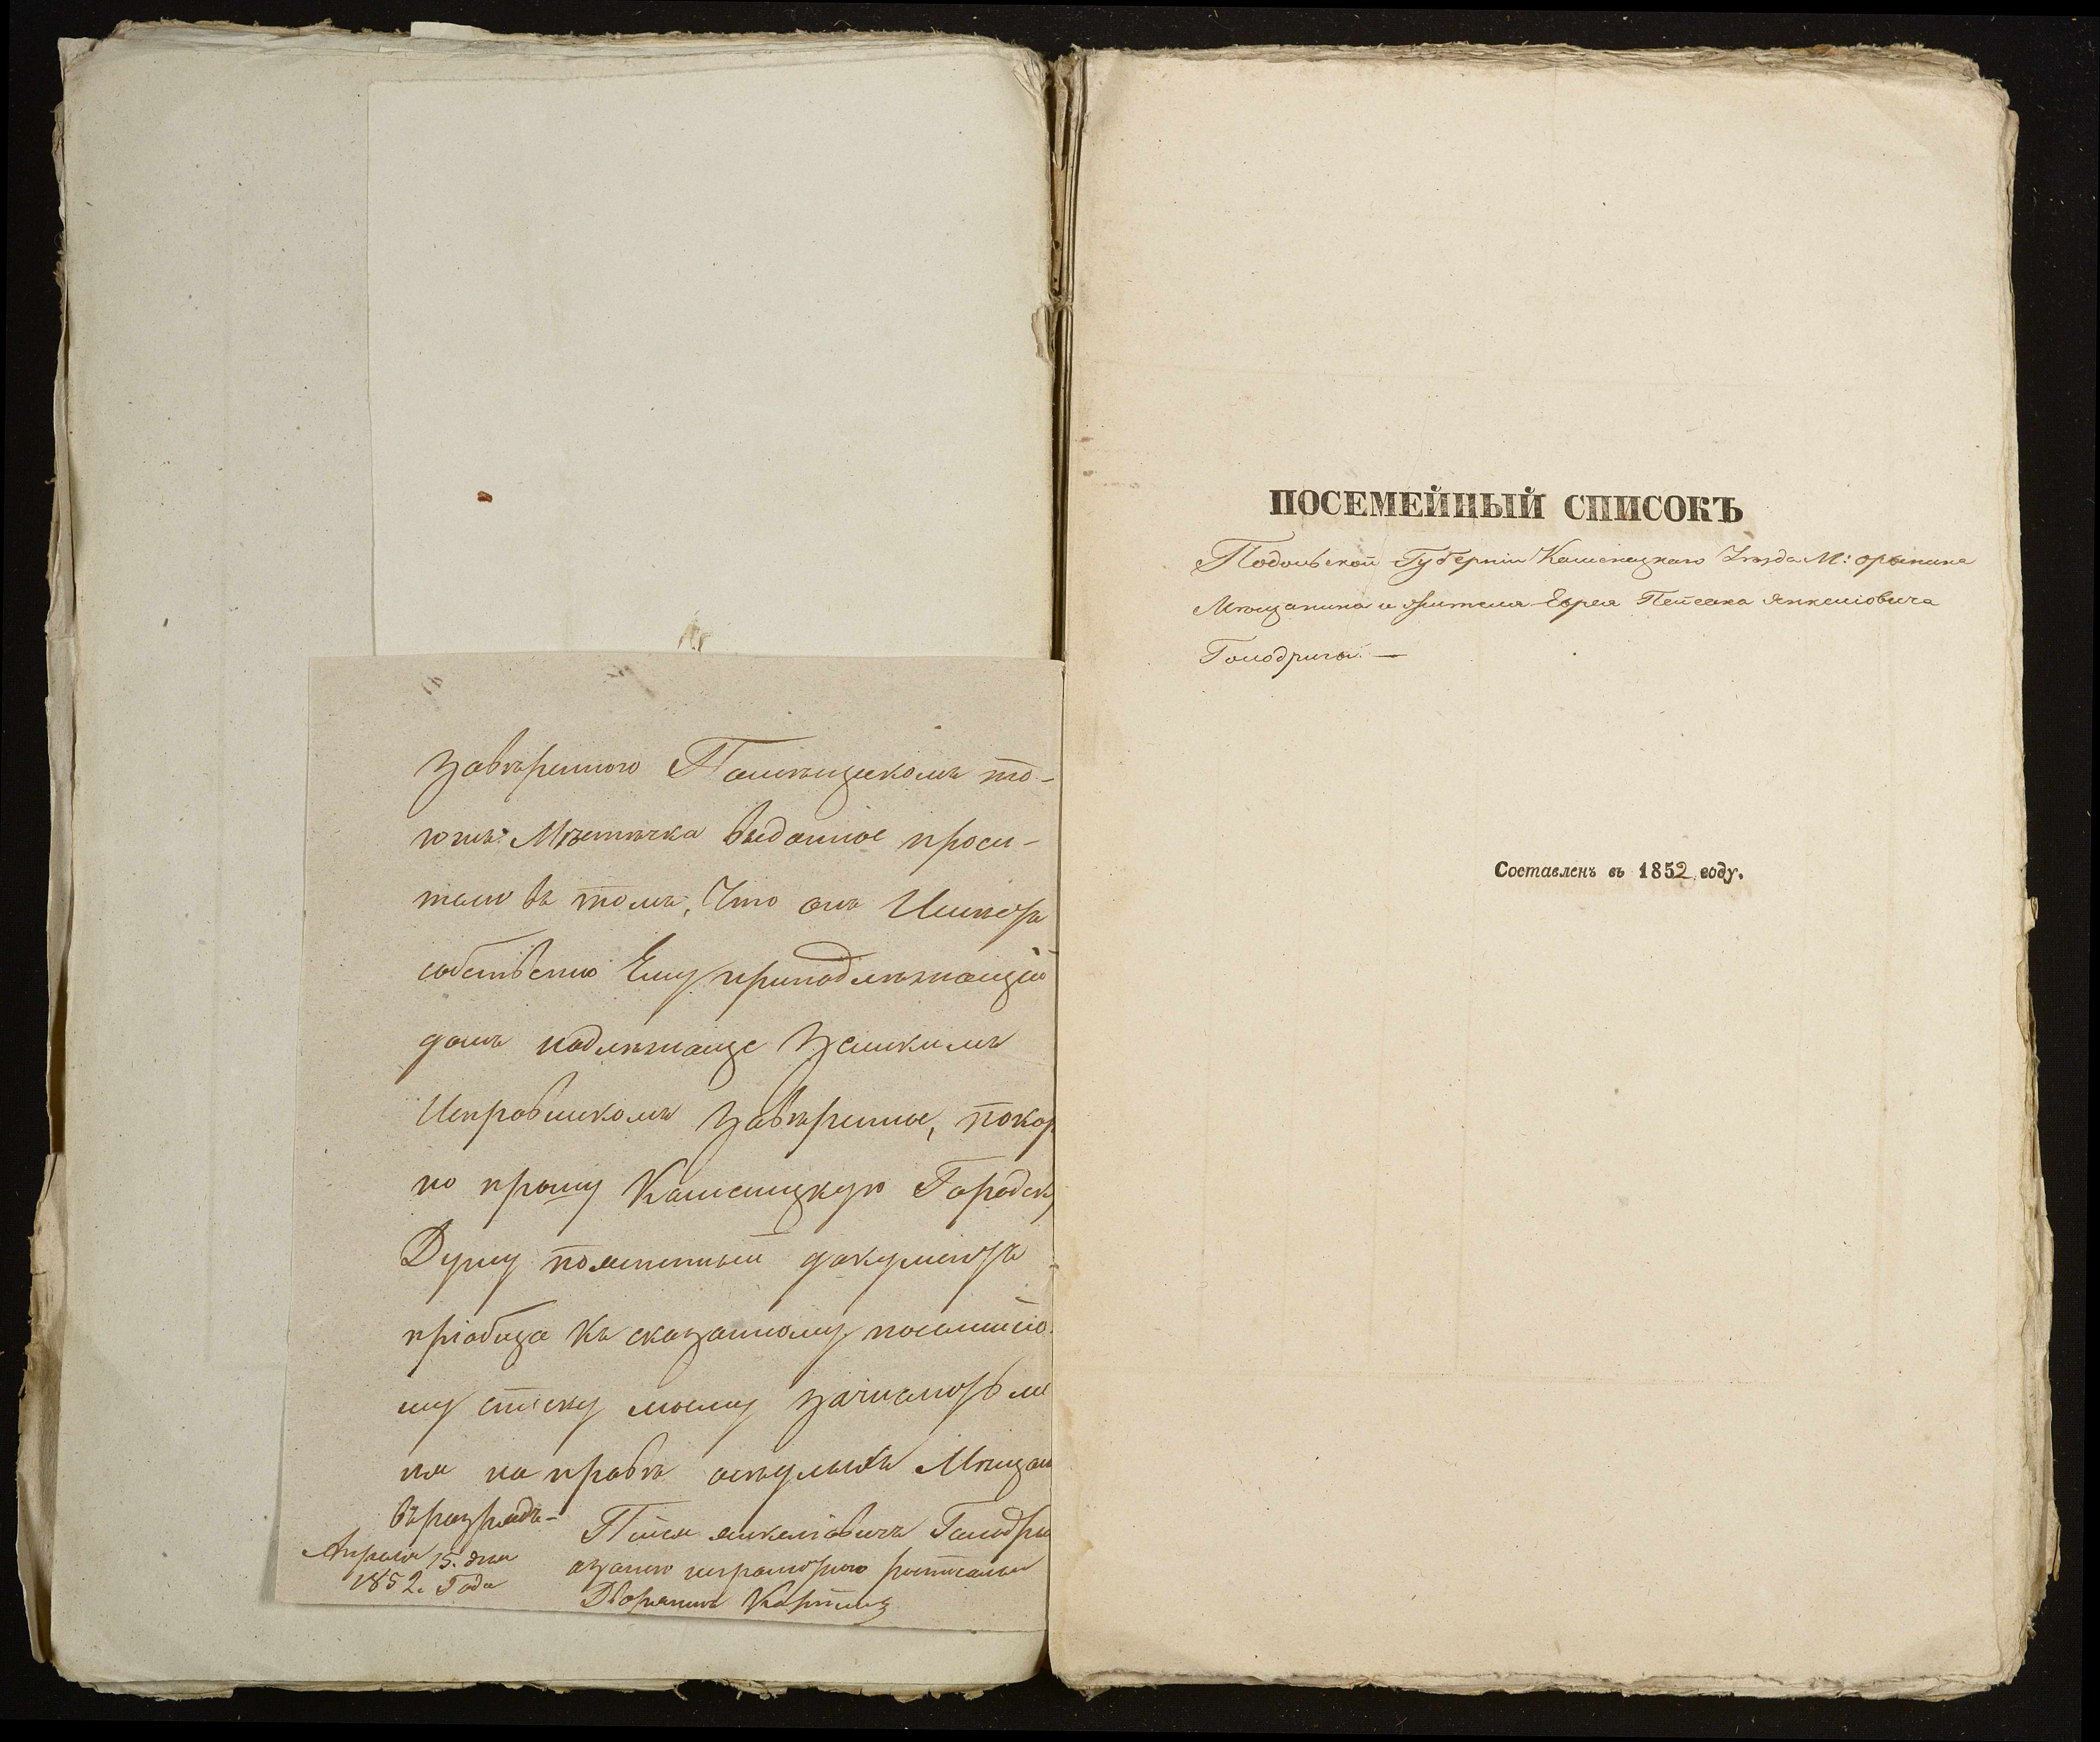 завѣренного Помѣщикомъ то-
гожъ Мѣстечка выданное проси-
телю въ томъ, Что онъ Имѣетъ
собствено Ему принадлѣжащій
домъ надлѣжаще Земскимъ
Исправникомъ завѣренное, покор
но прошу Каменецкую Городск
Думу помянтный документъ
пріобща къ сказанному посемейно
му списку моему зачислить ме
ня на правѣ осѣдлыхъ Мѣщан
въ разрядъ-
Апреля 15. дня
1852. Года
Пейсах Янкеліовичъ Голодри
а за него неграмотного росписался
Дворянинъ
ПОСЕМЕЙНЫЙ СПИСОКЪ
Подольской Губерніи Каменецкаго Уѣзда М: Орынина
Мѣщанина и жителя Еврея Пейсака Янкеліовича
Голодриги —
Составленъ въ 1852 году.